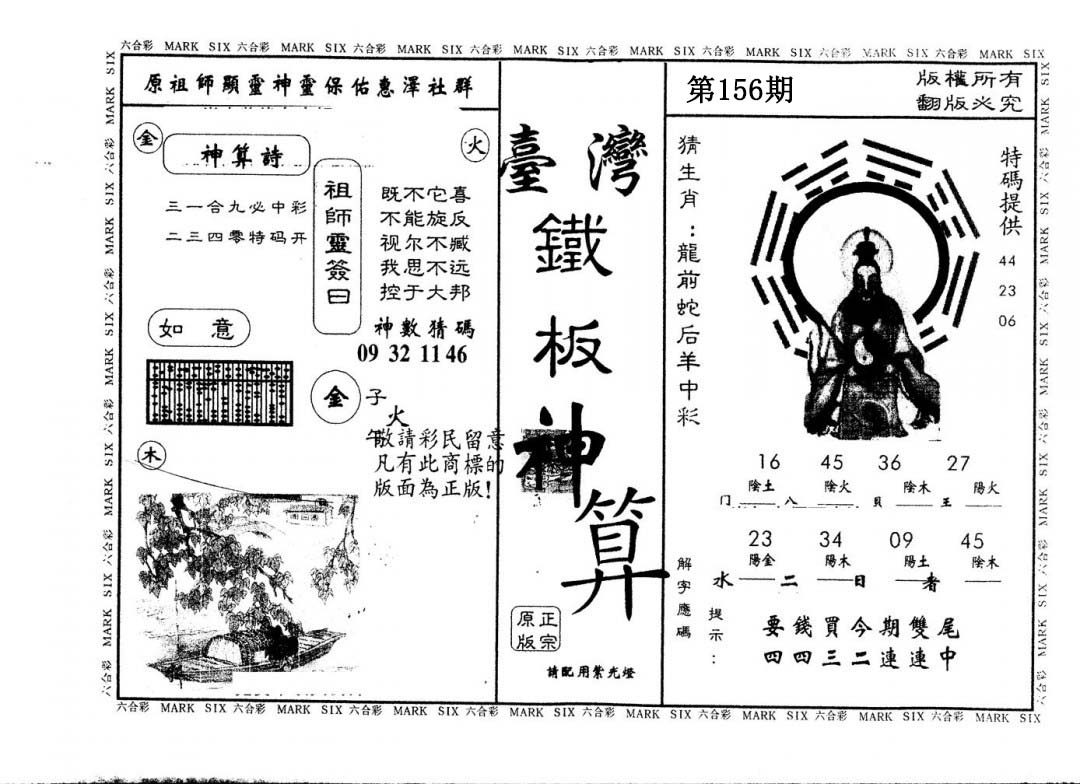 六合彩 MARK SIX 六合彩 MARK SIX 六合彩 MARK SIX 六合彩 MARK SIX 六合彩 MARK SIX 六合彩 MARK SIX 六合彩 MARK SIX 六合彩 MARK SIX
原祖師顯靈神靈保佑惠澤社群
金
神算詩
火
三一合九必中彩
二三四零特码开
祖師靈簽曰
既不它喜
不能旋反
视尔不臧
我思不远
控于大邦
如意
神數猜碼
09 32 11 46
金
子
火
午
敬請彩民留意
凡有此商標的
版面為正版!
木
臺灣
鐵板神算
正宗
原版
請配用紫光燈
第156期
版權所有
翻版必究
猜生肖:龍前蛇后羊中彩
特碼提供
44
23
06
16 45 36 27
陰土 陰火 陰木 陽火
门 八 貝 王
23 34 09 45
陽金 陽木 陽土 陰木
水 二 日 者
解字應碼
提示:
要錢買今期雙尾
四四三二連連中
六合彩 MARK SIX 六合彩 MARK SIX 六合彩 MARK SIX 六合彩 MARK SIX 六合彩 MARK SIX 六合彩 MARK SIX 六合彩 MARK SIX 六合彩 MARK SIX